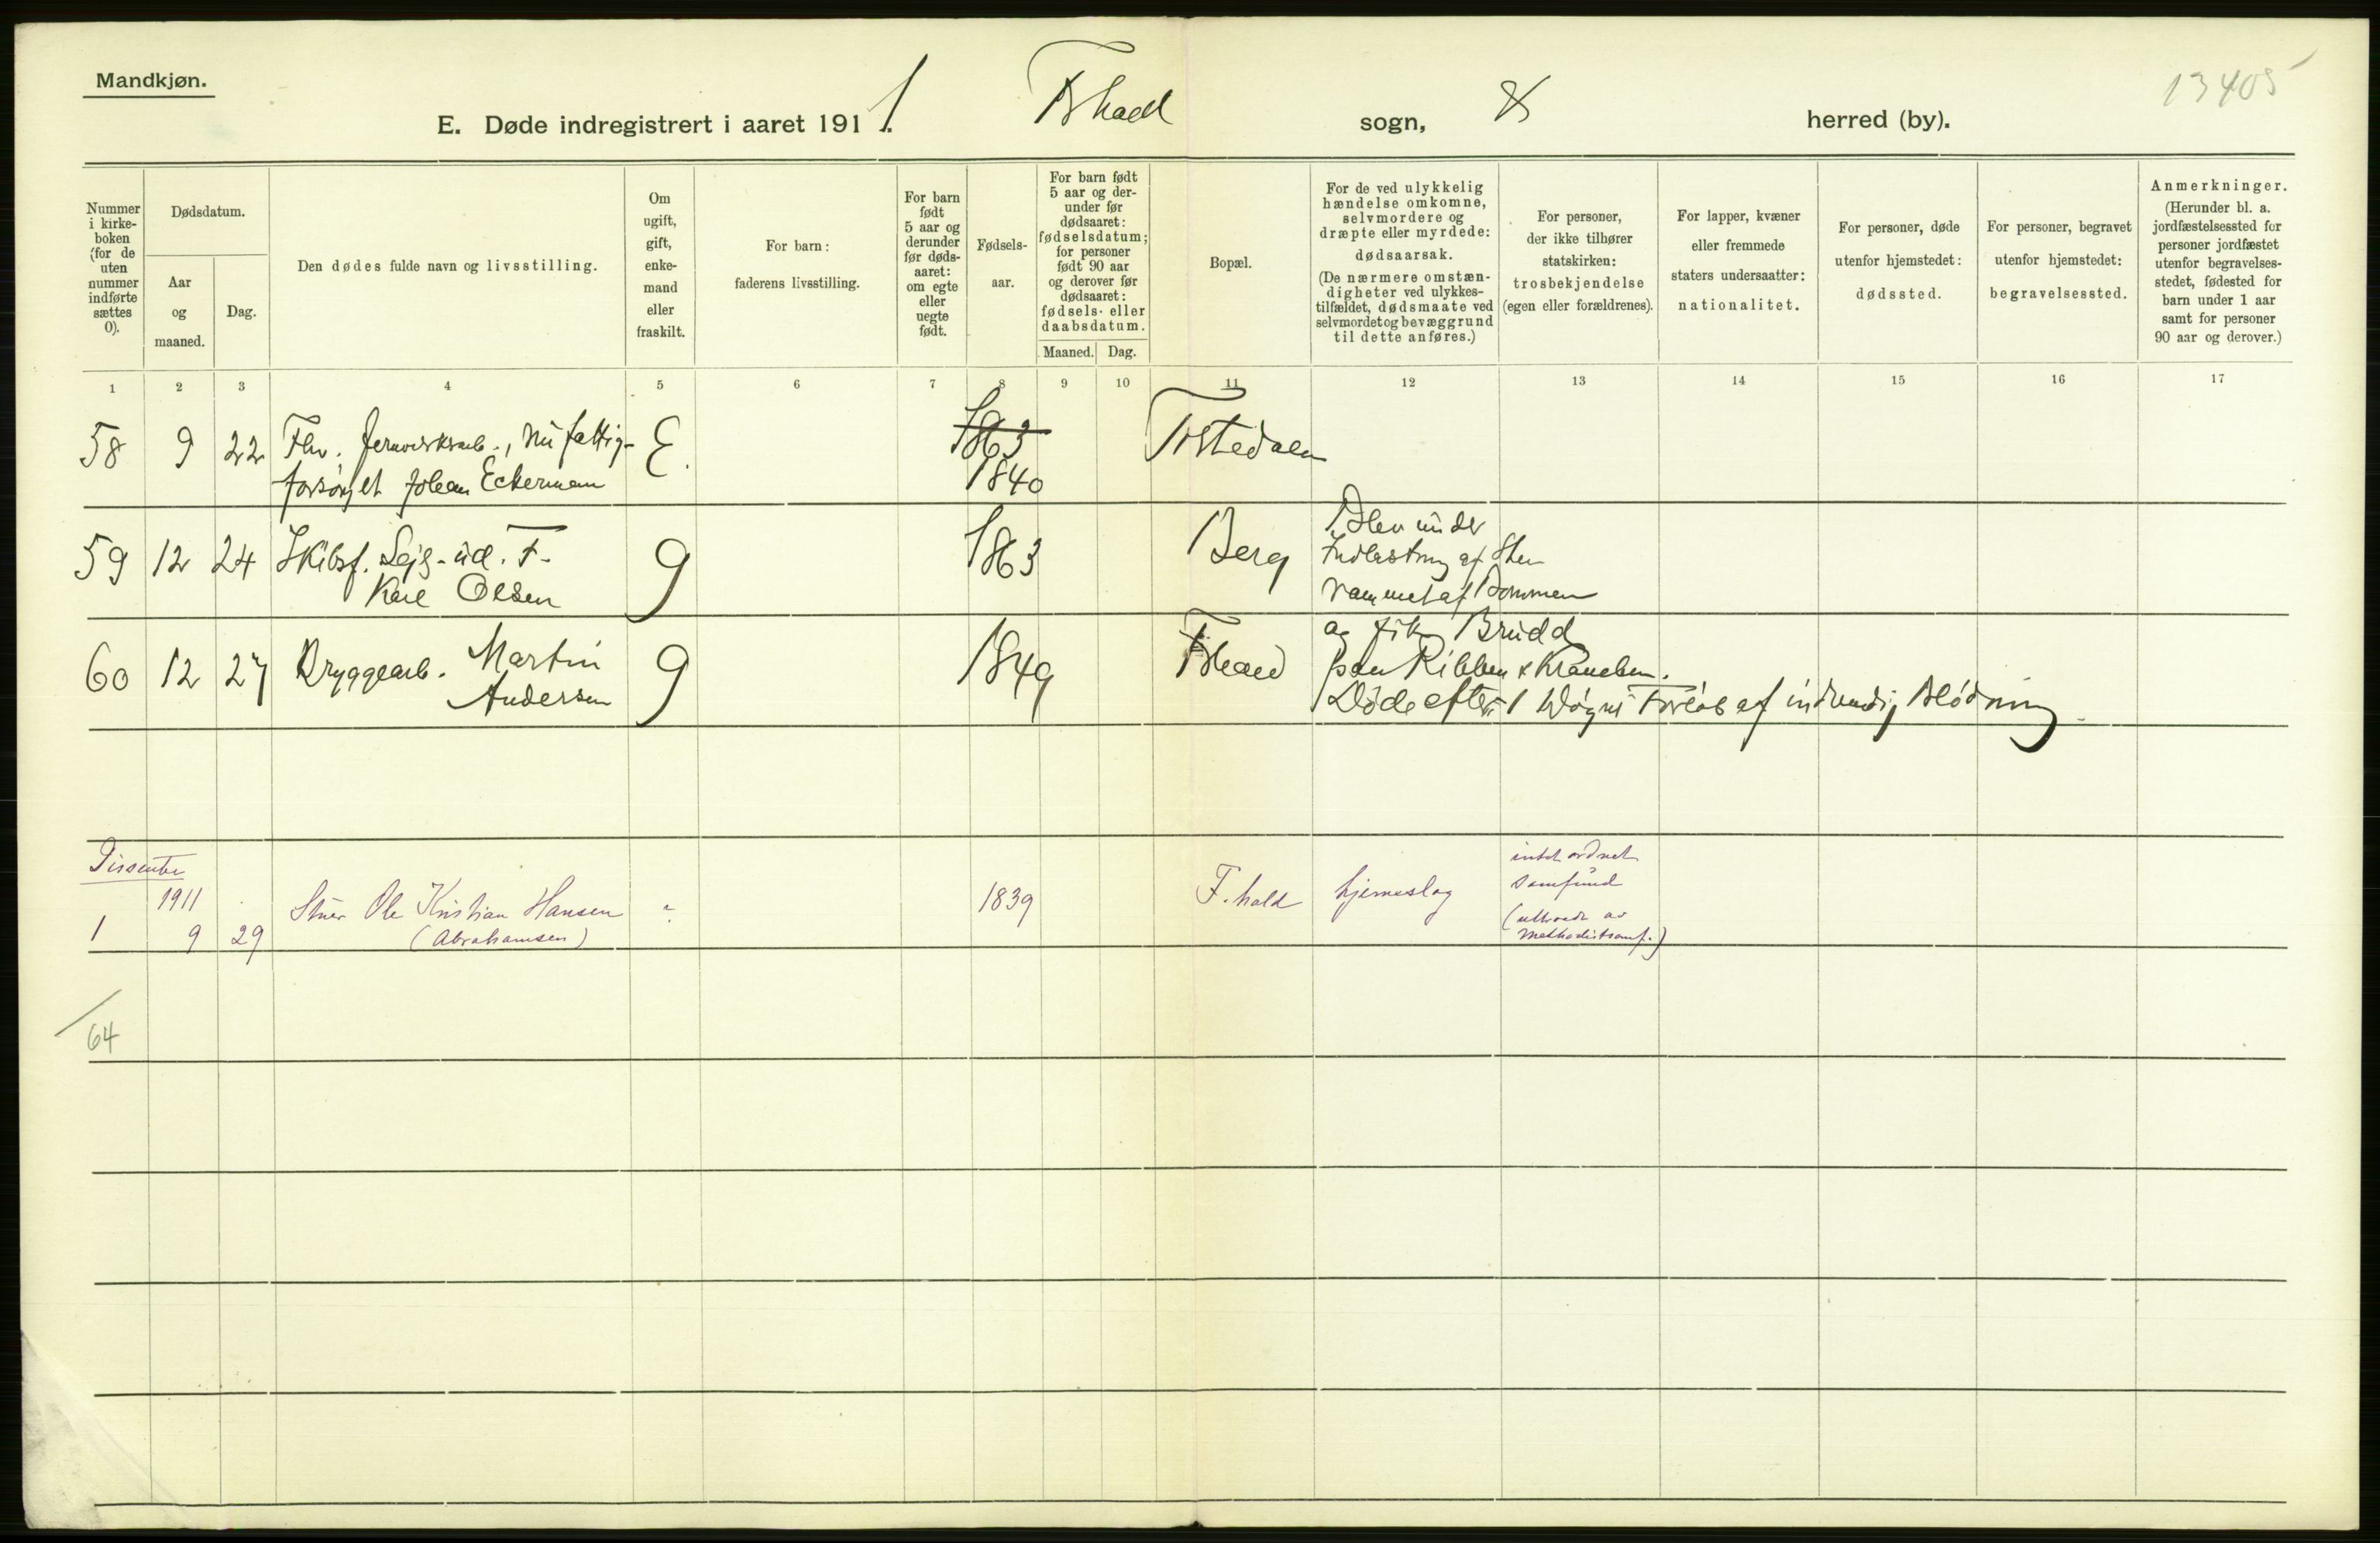 Mandkjøn.
13405
E. Døde indregistrert i aaret 1911. Fr.hald sogn, herred (by).
Nummer i kirke-boken (for de uten nummer indførte sættes 0).
Dødsdatum.
Aar og maaned.
Dag.
Den dødes fulde navn og livsstilling.
Om ugift, gift, enke-mand eller fraskilt.
For barn: faderens livsstilling.
For barn født 5 aar og derunder før døds-aaret: om egte eller uegte født.
Fødsels-aar.
For barn født 5 aar og der-under før dødsaaret: fødselsdatum; for personer født 90 aar og derover før dødsaaret: fødsels- eller daabsdatum.
Maaned. Dag.
Bopæl.
For de ved ulykkelig hændelse omkomne, selvmordere og dræpte eller myrdede: dødsaarsak.
(De nærmere omstæn-digheter ved ulykkes-tilfældet, dødsmaate ved selvmordet og bevæggrund til dette anføres.)
For personer, der ikke tilhører statskirken: trosbekjendelse (egen eller forældrenes).
For lapper, kvæner eller fremmede staters undersaatter: nationalitet.
For personer, døde utenfor hjemstedet: dødssted.
For personer, begravet utenfor hjemstedet: begravelsessted.
Anmerkninger.
(Herunder bl. a. jordfæstelsessted for personer jordfæstet utenfor begravelses-stedet, fødested for barn under 1 aar samt for personer 90 aar og derover.)
1 2 3 4 5 6 7 8 9 10 11 12 13 14 15 16 17
58 9 22 Fhv. Jernverksarb., nu fattig- E. 1863 Tistedalen
forsørget Johan Eckerman 1840
59 12 24 Skibsf. Sejs-ud. F. g 1863 Berg Blev under
Karl Olsen Indlastning af Sten
rammet af Bommen
60 12 27 Bryggearb. Martin g 1849 Fr.hald og fik Brudd
Andersen paa Ribben & Kraveben.
Døde efter 1 Døgns Forløb af indvendig Blødning
Dissenter
1911
1 9 29 Stuer Ole Kristian Hansen - 1839 F.hald hjerneslag intet ordnet
(Abrahamsen) samfund
(uttraadt av
Methodistsamf.)
64